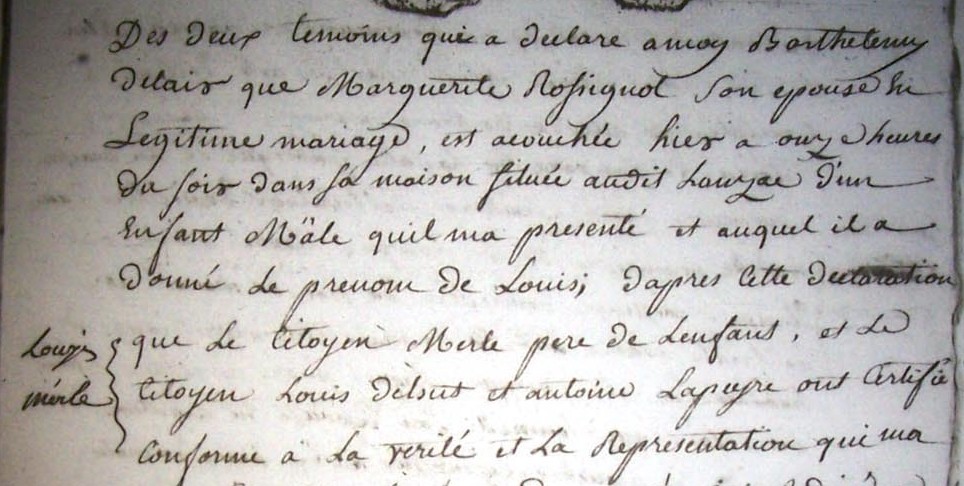 Des deux temoins qui a declare a moy Barthelemy
Delair que Marguerite Rossignol Son epouse En
Legitime mariage, est acouchée hier a onze heures
du soir dans sa maison située audit Lauzac d'un
Enfant Mâle quil ma presenté et auquel il a
donné Le prenom de Louis; dapres Cette declaration
que Le Citoyen Merle pere de Lenfant, et Le
Louis
Citoyen Louis Delsut et antoine Lapeyre ont Certifié
mérle
Conforme a La verité et La Representation qui ma